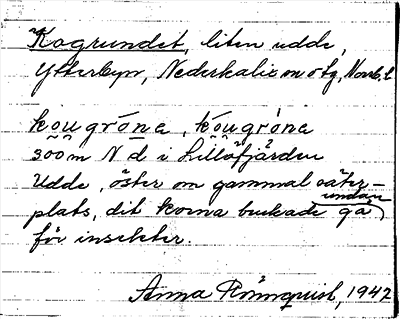 Kogrundet, liten udde,
Ytterbyn, Nederkalix
kǫu grṓna, kǫ́u gr'ona
300 m N d i Lillöfjärden
Udde, öster om gammal säter-
plats, dit korna brukade gå undan
för insekter.
Anna Rönnqvist, 1942